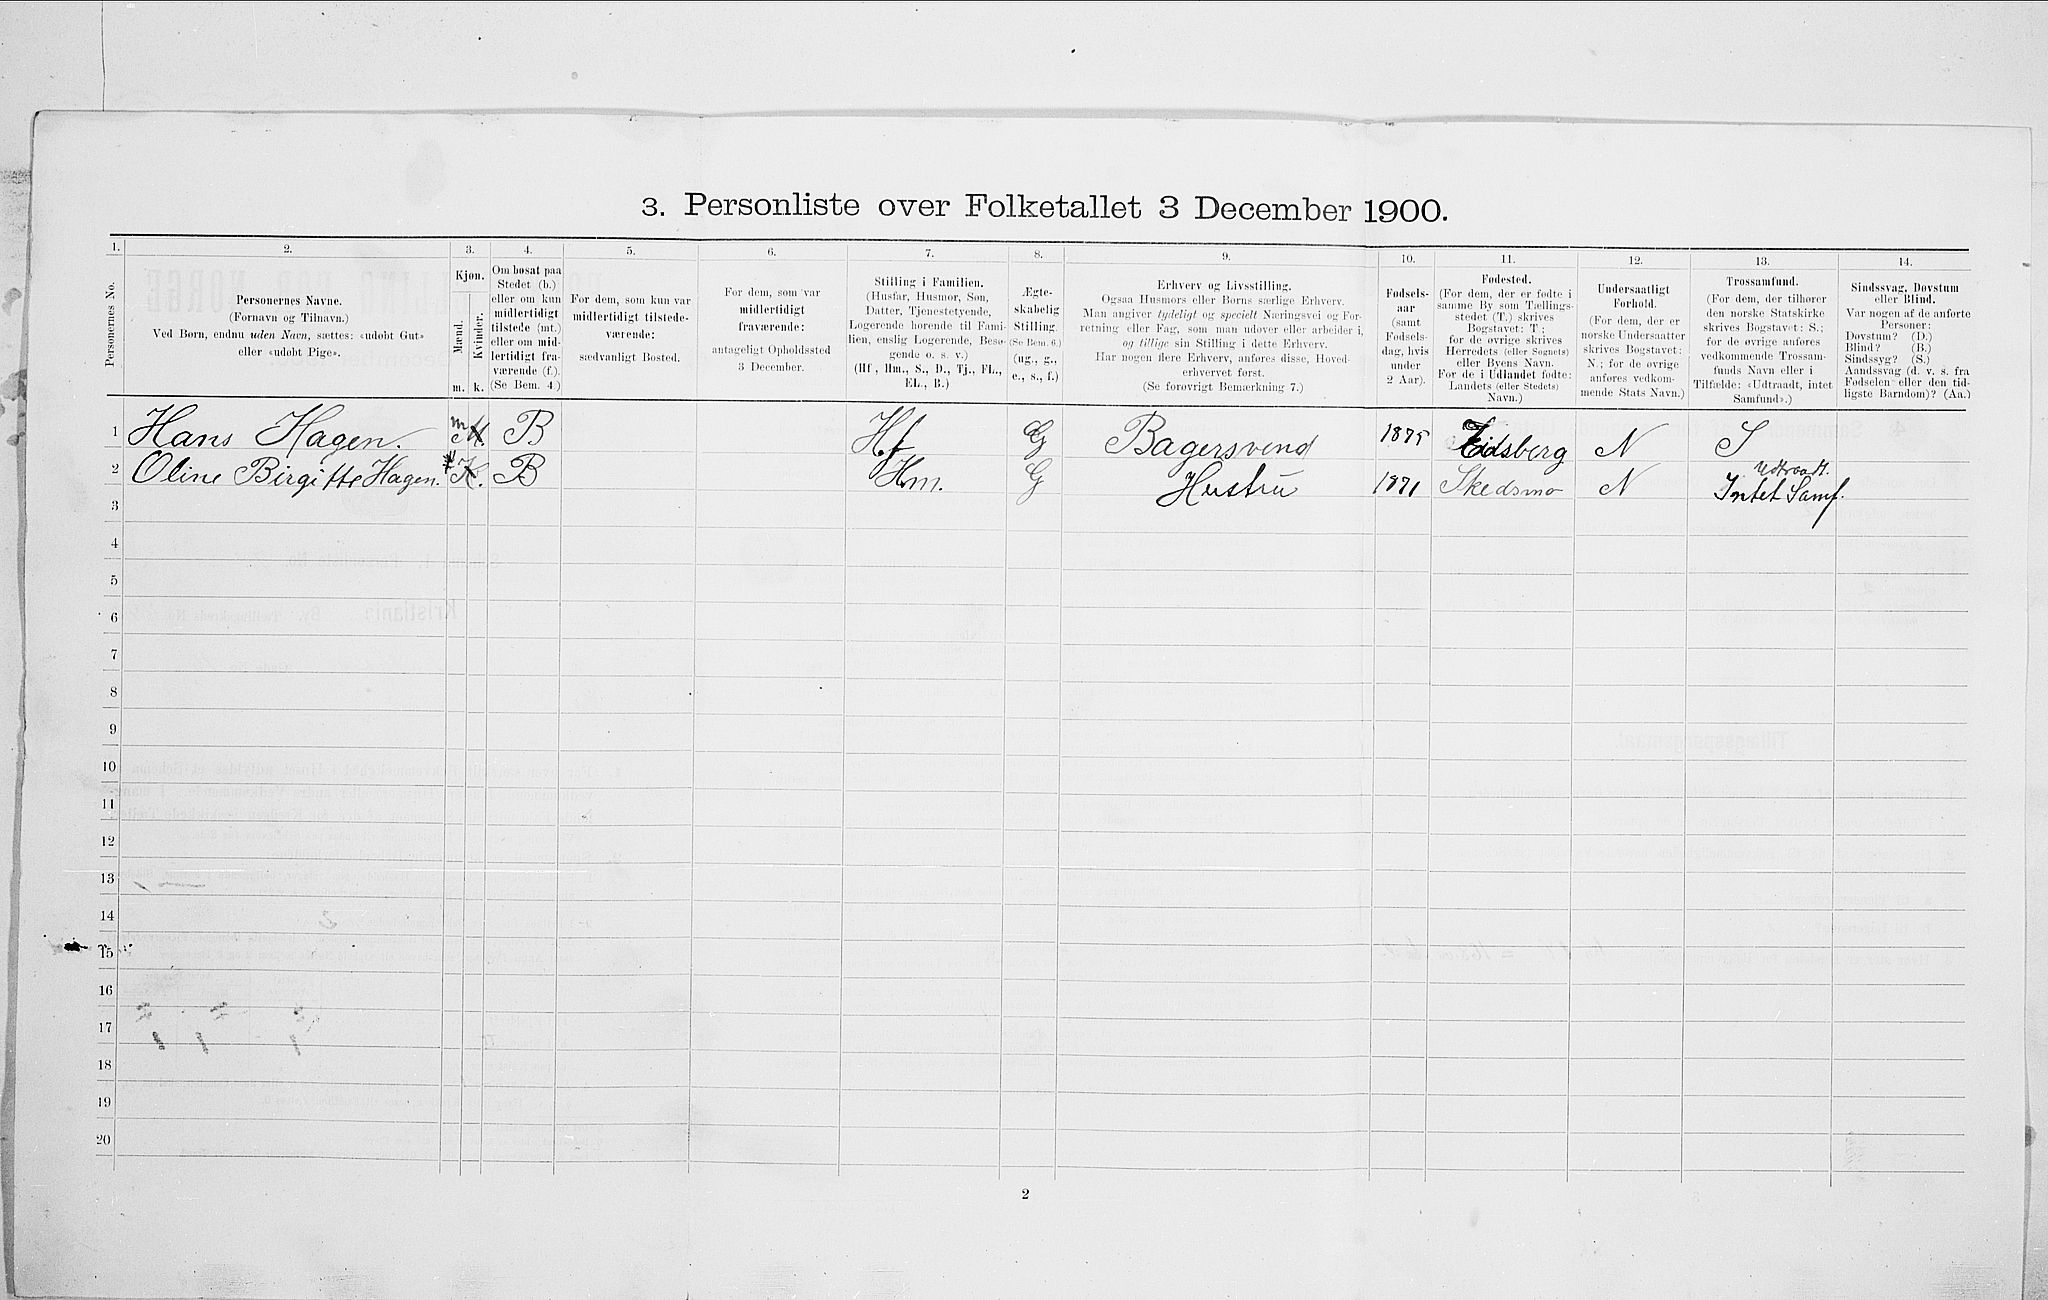 3. Personliste over Folketallet 3 December 1900.
1. 2. 3. 4. 5. 6. 7. 8. 9. 10. 11. 12. 13. 14.
Personernes No.
Personernes Navne.
(Fornavn og Tilnavn.)
Ved Børn, endnu uden Navn, sættes: «udøbt Gut»
eller «udøbt Pige».
Kjøn.
Mænd.
Kvinder.
m. k.
Om bosat paa
Stedet (b.)
eller om kun
midlertidigt
tilstede (mt.)
eller om mid-
lertidigt fra-
værende (f.)
(Se Bem. 4.)
For dem, som kun var
midlertidigt tilstede-
værende:
sædvanligt Bosted.
For dem, som var
midlertidigt
fraværende:
antageligt Opholdssted
3 December.
Stilling i Familien.
(Husfar, Husmor, Søn,
Datter, Tjenestetyende,
Logerende hørende til Fami-
lien, enslig Logerende, Besø-
gende o. s. v.)
(Hf., Hm., S., D., Tj., FL.,
EL., B.)
Ægte-
skabelig
Stilling.
(Se Bem. 6.)
(ug., g.,
e., s., f.)
Erhverv og Livsstilling.
Ogsaa Husmors eller Børns særlige Erhverv.
Man angiver tydeligt og specielt Næringsvei og For-
retning eller Fag, som man udøver eller arbeider i,
og tillige sin Stilling i dette Erhverv.
Har nogen flere Erhverv, anføres disse, Hoved-
erhvervet først.
(Se forøvrigt Bemærkning 7.)
Fødsels-
aar
(samt
Fødsels-
dag, hvis
under
2 Aar).
Fødested.
(For dem, der er fødte i
samme By som Tællings-
stedet (T.) skrives
Bogstavet: T ;
for de øvrige skrives
Herredets (eller Sognets)
eller Byens Navn.
For de i Udlandet fødte:
Landets (eller Stedets)
Navn.)
Undersaatligt
Forhold.
(For dem, der er
norske Undersaatter
skrives Bogstavet:
N.; for de øvrige
anføres vedkom-
mende Stats Navn.)
Trossamfund.
(For dem, der tilhører
den norske Statskirke
skrives Bogstavet: S.;
for de øvrige anføres
vedkommende Trossam-
funds Navn eller i
Tilfælde: «Udtraadt, intet
Samfund».)
Sindssvag, Døvstum
eller Blind.
Var nogen af de anførte
Personer:
Døvstum? (D.)
Blind? (B.)
Sindssyg? (S.)
Aandssvag (d. v. s. fra
Fødselen eller den tid-
ligste Barndom)? (Aa.)
1 Hans Hagen. m B Hf G Bagersvend 1875 Eidsberg N S
2 Oline Birgitte Hagen. K. B Hm. G Hustru 1871 Skedsmo N Udtraadt.
Intet Samf.
3
4
5
6
7
8
9
10
11
12
13
14
15
16
17
18
19
20
2